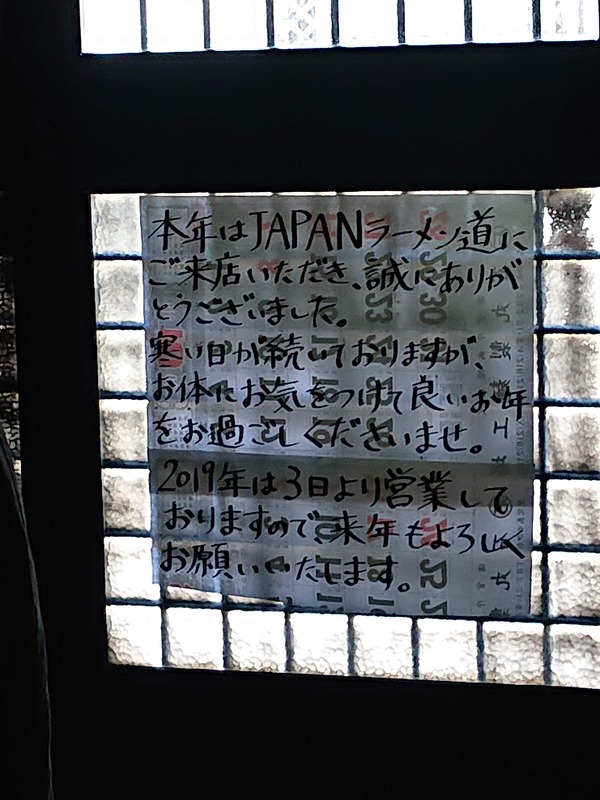 本年はJAPANラーメン道に
ご来店いただき、誠にありが
とうございました。
寒い日が続いておりますが、
お体にお気をつけて良いお年
をお過ごしくださいませ。
2019年は3日より営業して
おりますので来年もよろしく
お願いいたします。